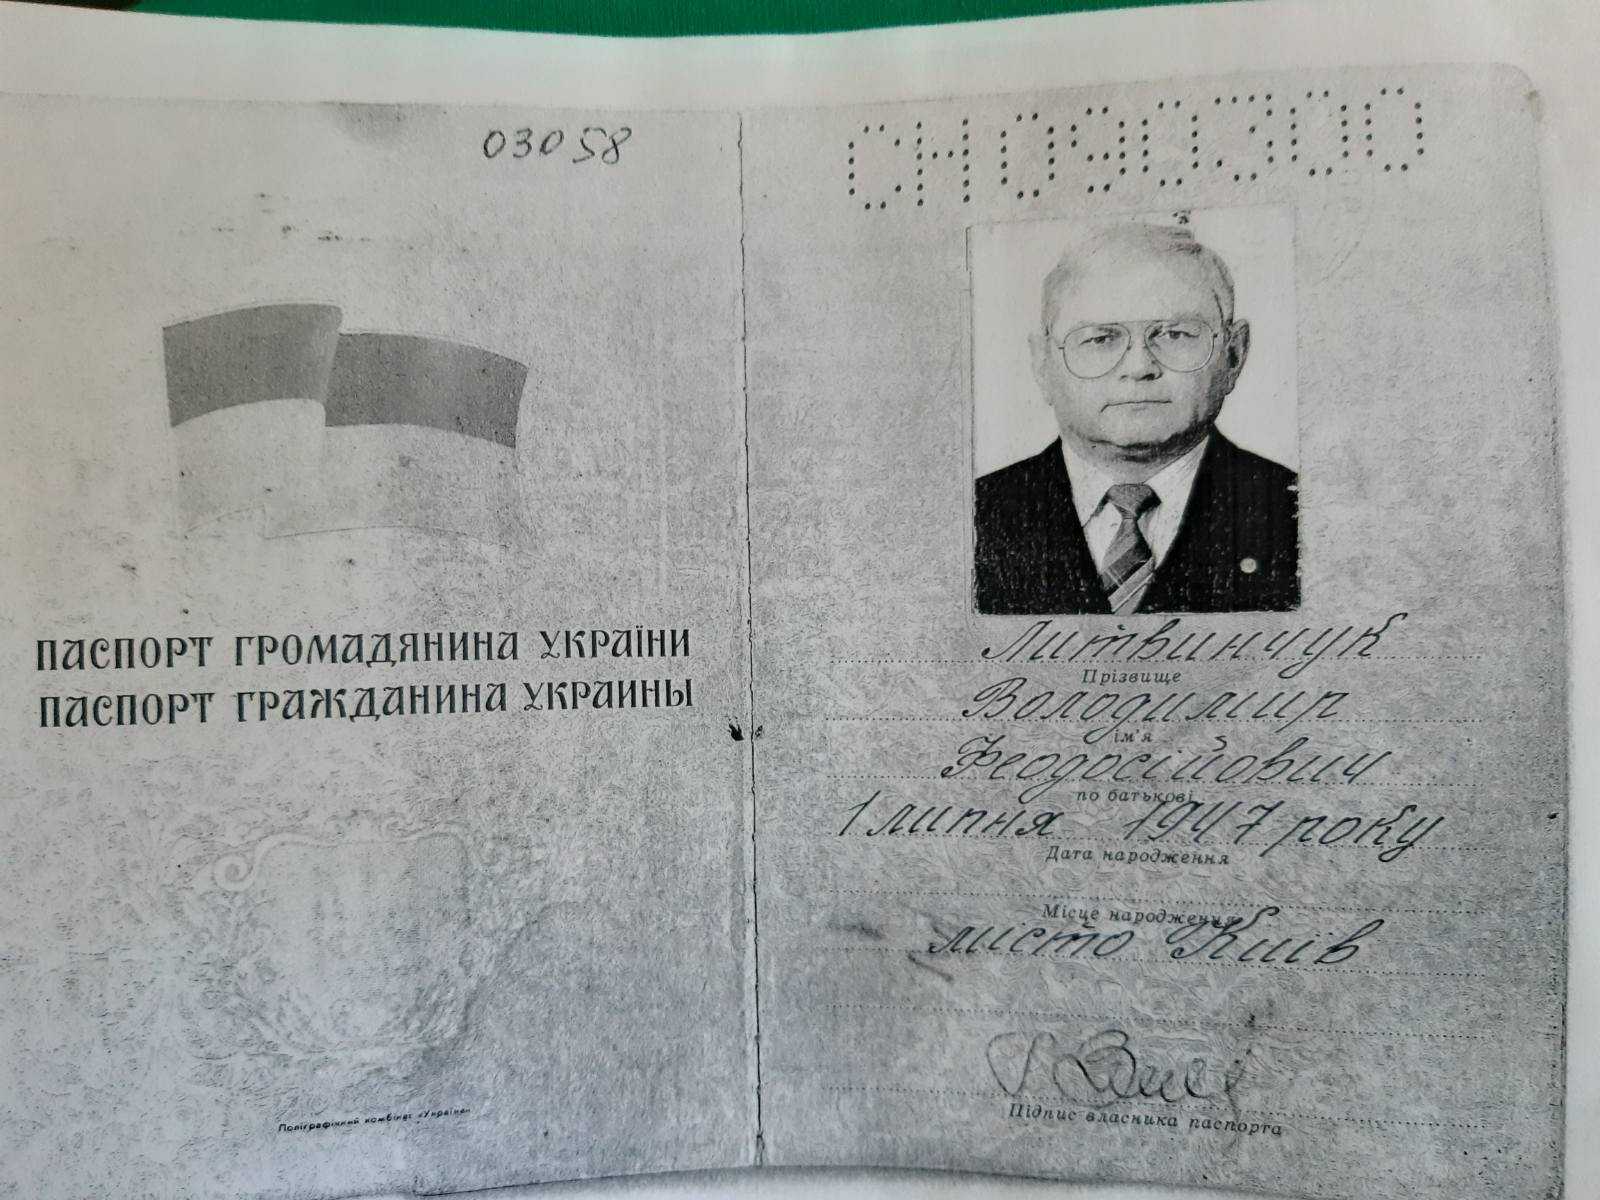 03058
ПАСПОРТ ГРОМАДЯНИНА УКРАЇНИ
ПАСПОРТ ГРАЖДАНИНА УКРАИНЫ
Поліграфічний комбінат «Україна»
СН090300
Литвинчук
Прізвище
Володимир
ім'я
Феодосійович
по батькові
1 липня 1947 року
Дата народження
Місце народження
місто Київ
Підпис власника паспорта